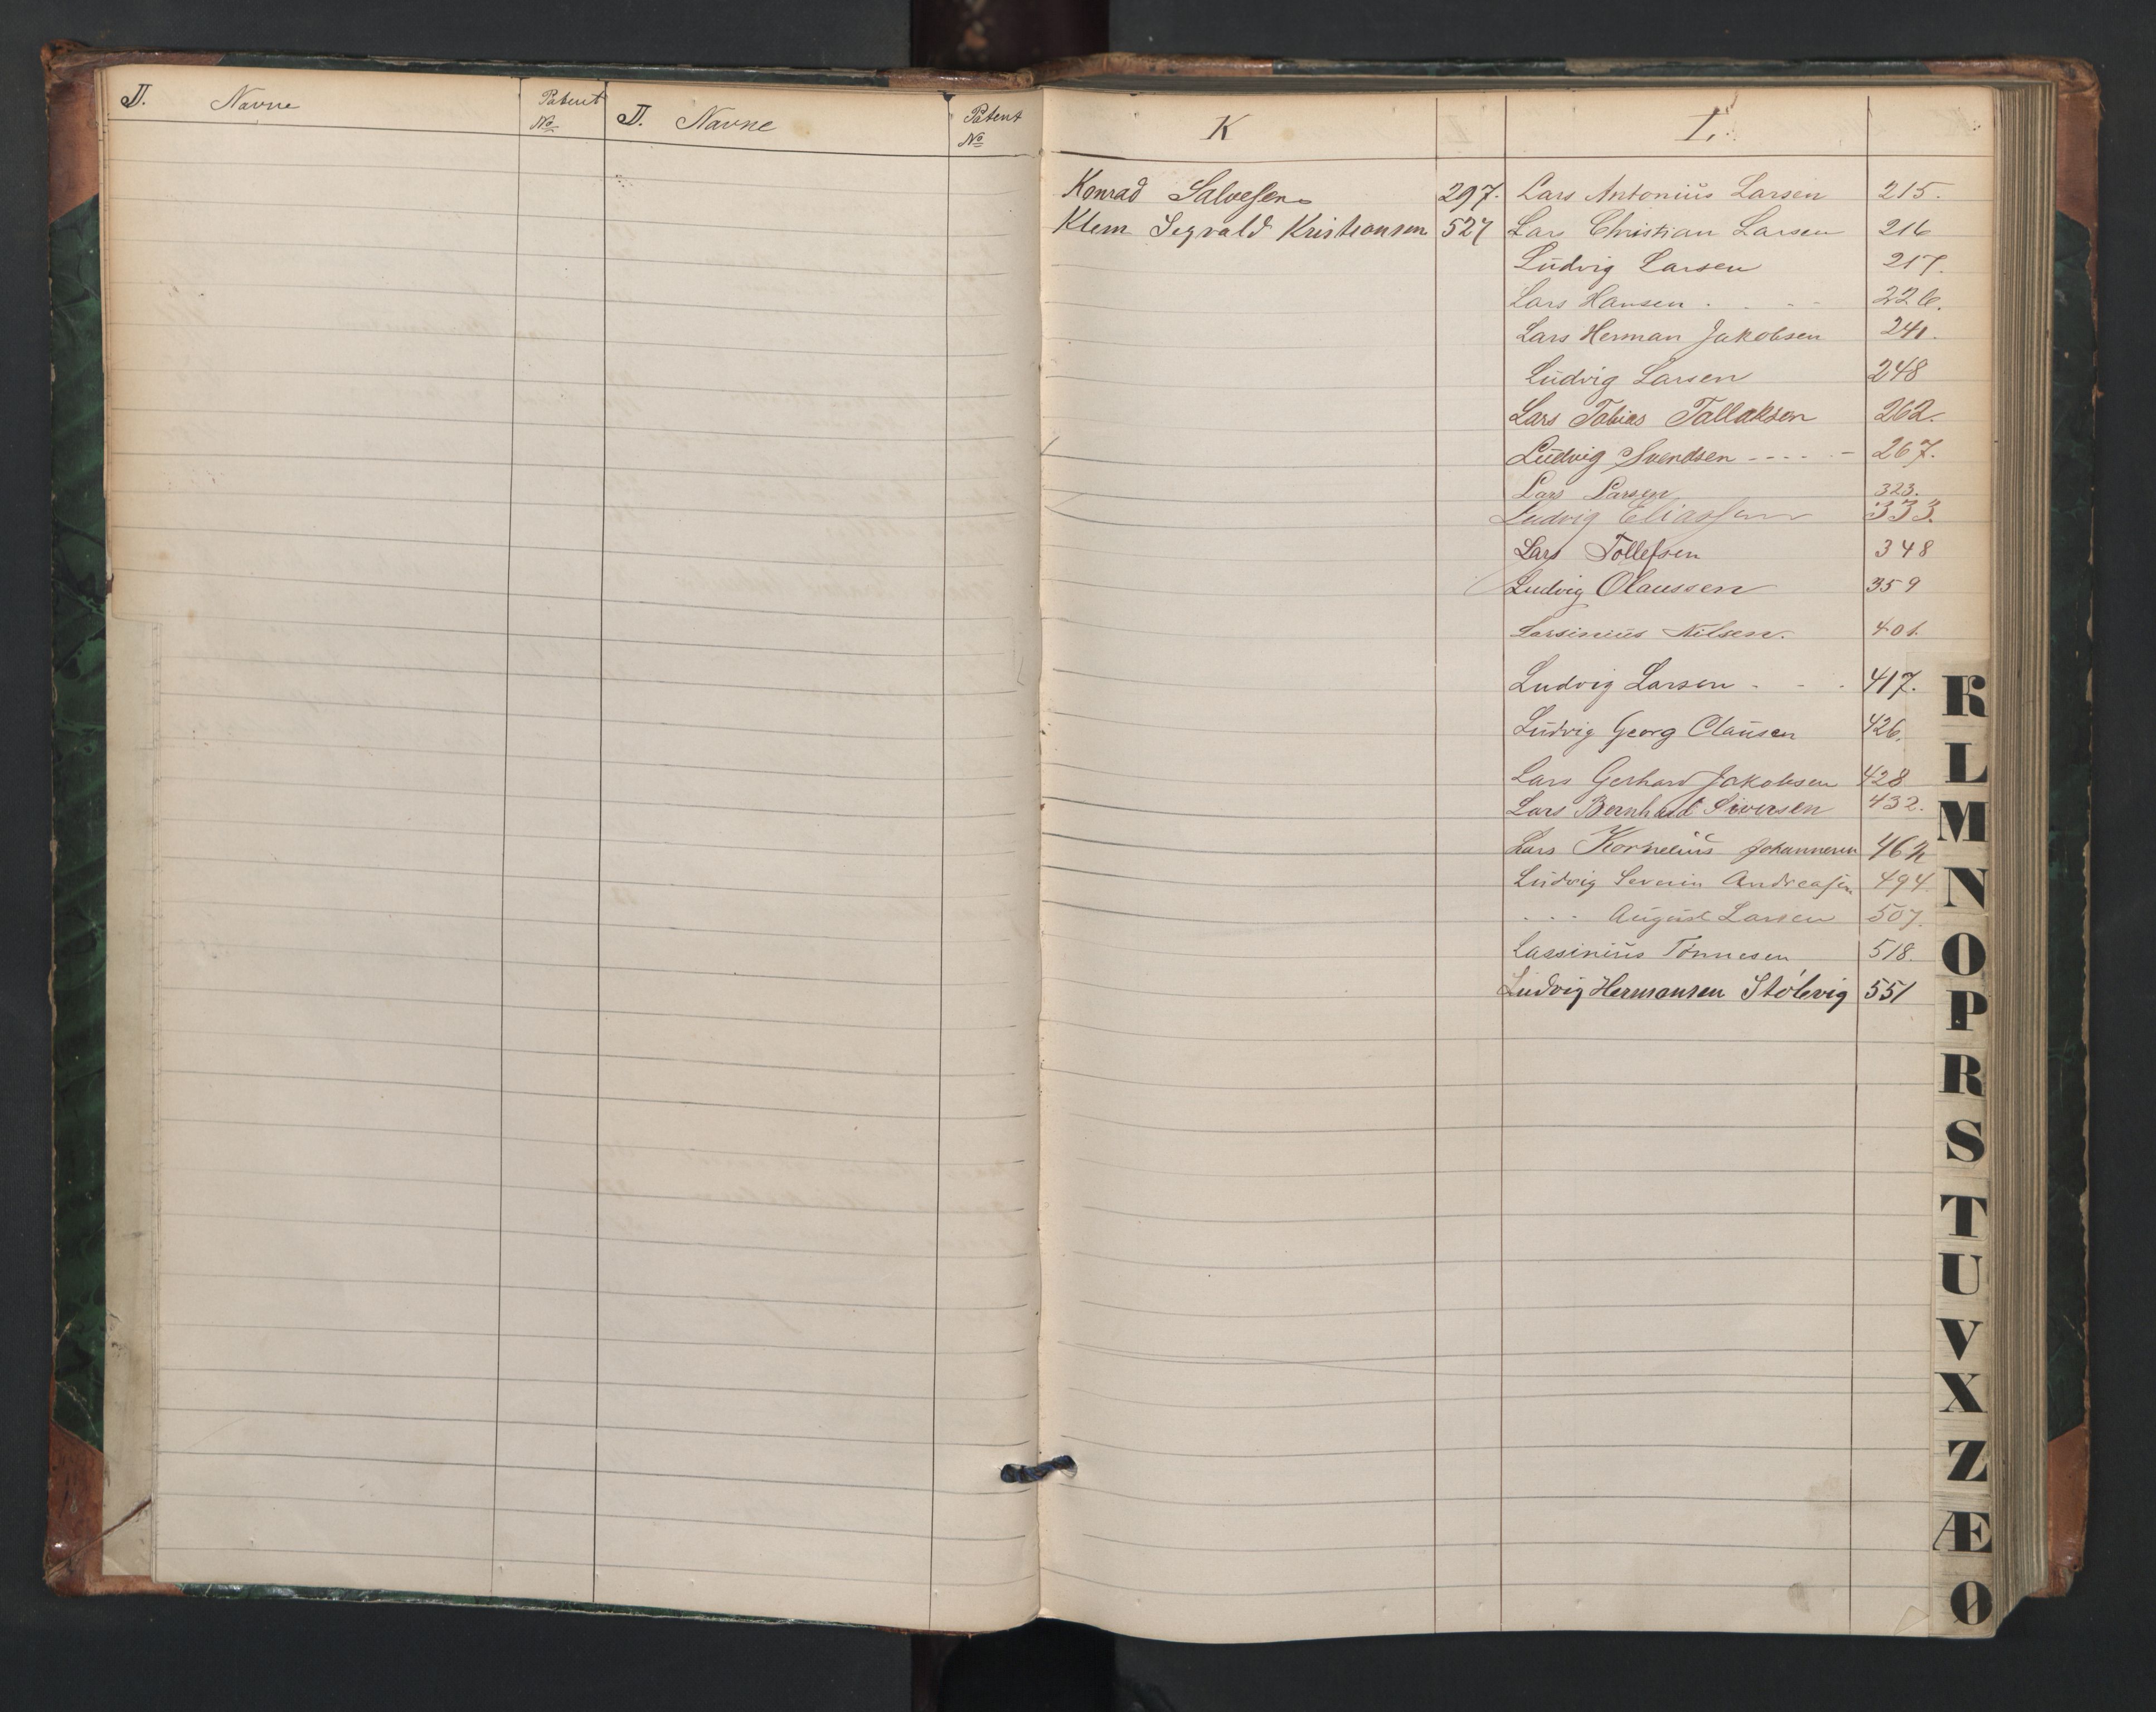 J. Navne Patent No J. Navne Patent No
K
Konrad Salvesen 297.
Klem Segvald Kristiansen 527
L.
Lars Antonius Larsen 215.
Lars Christian Larsen 216
Ludvig Larsen 217.
Lars Hansen . - - 226.
Lars Herman Jakobsen 241.
Ludvig Larsen 248
Lars Tobias Tallaksen 262.
Ludvig Svendsen - - - - - 267.
Lars Larsen 323.
Ludvig Eliassen 333.
Lars Tollefsen 348
Ludvig Olaussen 359
Larsinius Nilsen. 401.
Ludvig Larsen - - - 417.
Ludvig Georg Clausen 426.
Lars Gerhard Jakobsen 428
Lars Bernhard Siversen 432.
Lars Kornelius Johannesen 462
Ludvig Severin Andreasen 494.
- - - August Larsen 507.
Lassinius Tønnesen 518.
Ludvig Hermansen Stølevig 551
K
L
M
N
O
P
R
S
T
U
V
X
Z
Æ
Ø